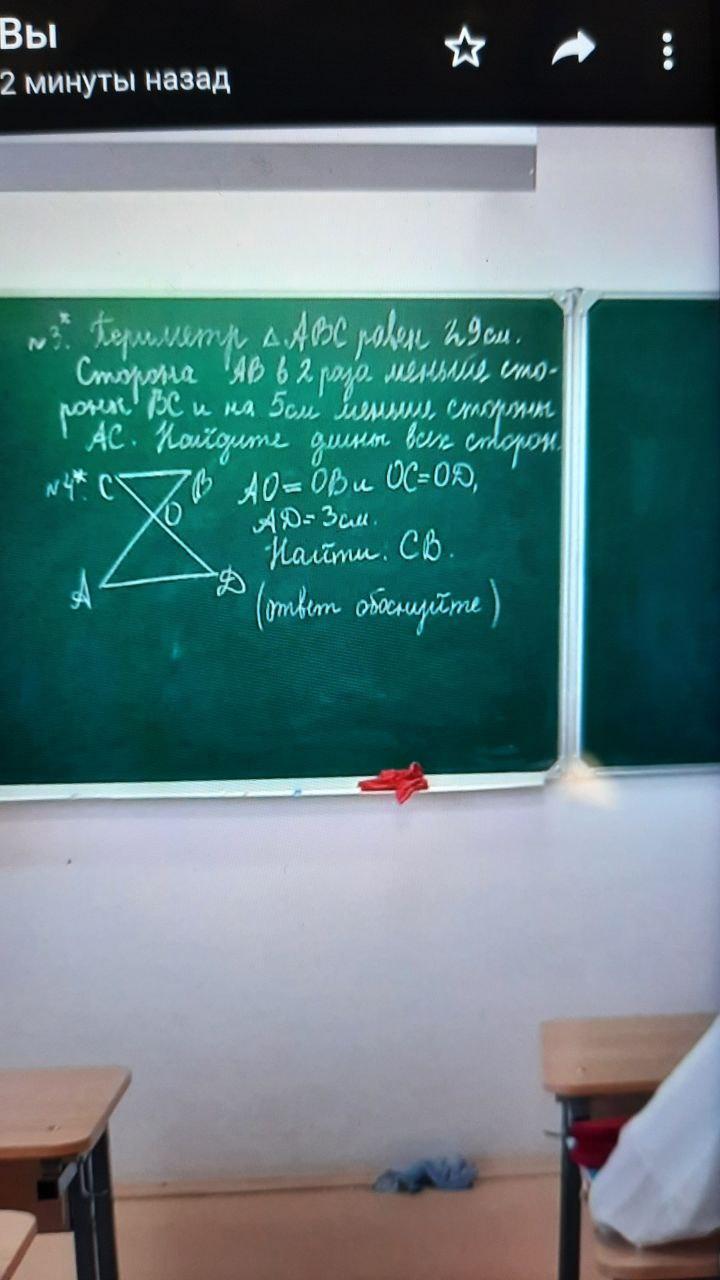 Вы
2 минуты назад
№3*. Периметр △ АВС равен 29см.
Сторона АВ в 2 раза меньше сто-
роны ВС и на 5см меньше стороны
АС. Найдите длины всех сторон.
№4*. С В АО=ОВ и ОС=ОД,
О АД=3см.
Найти: СВ.
А Д (ответ обоснуйте)